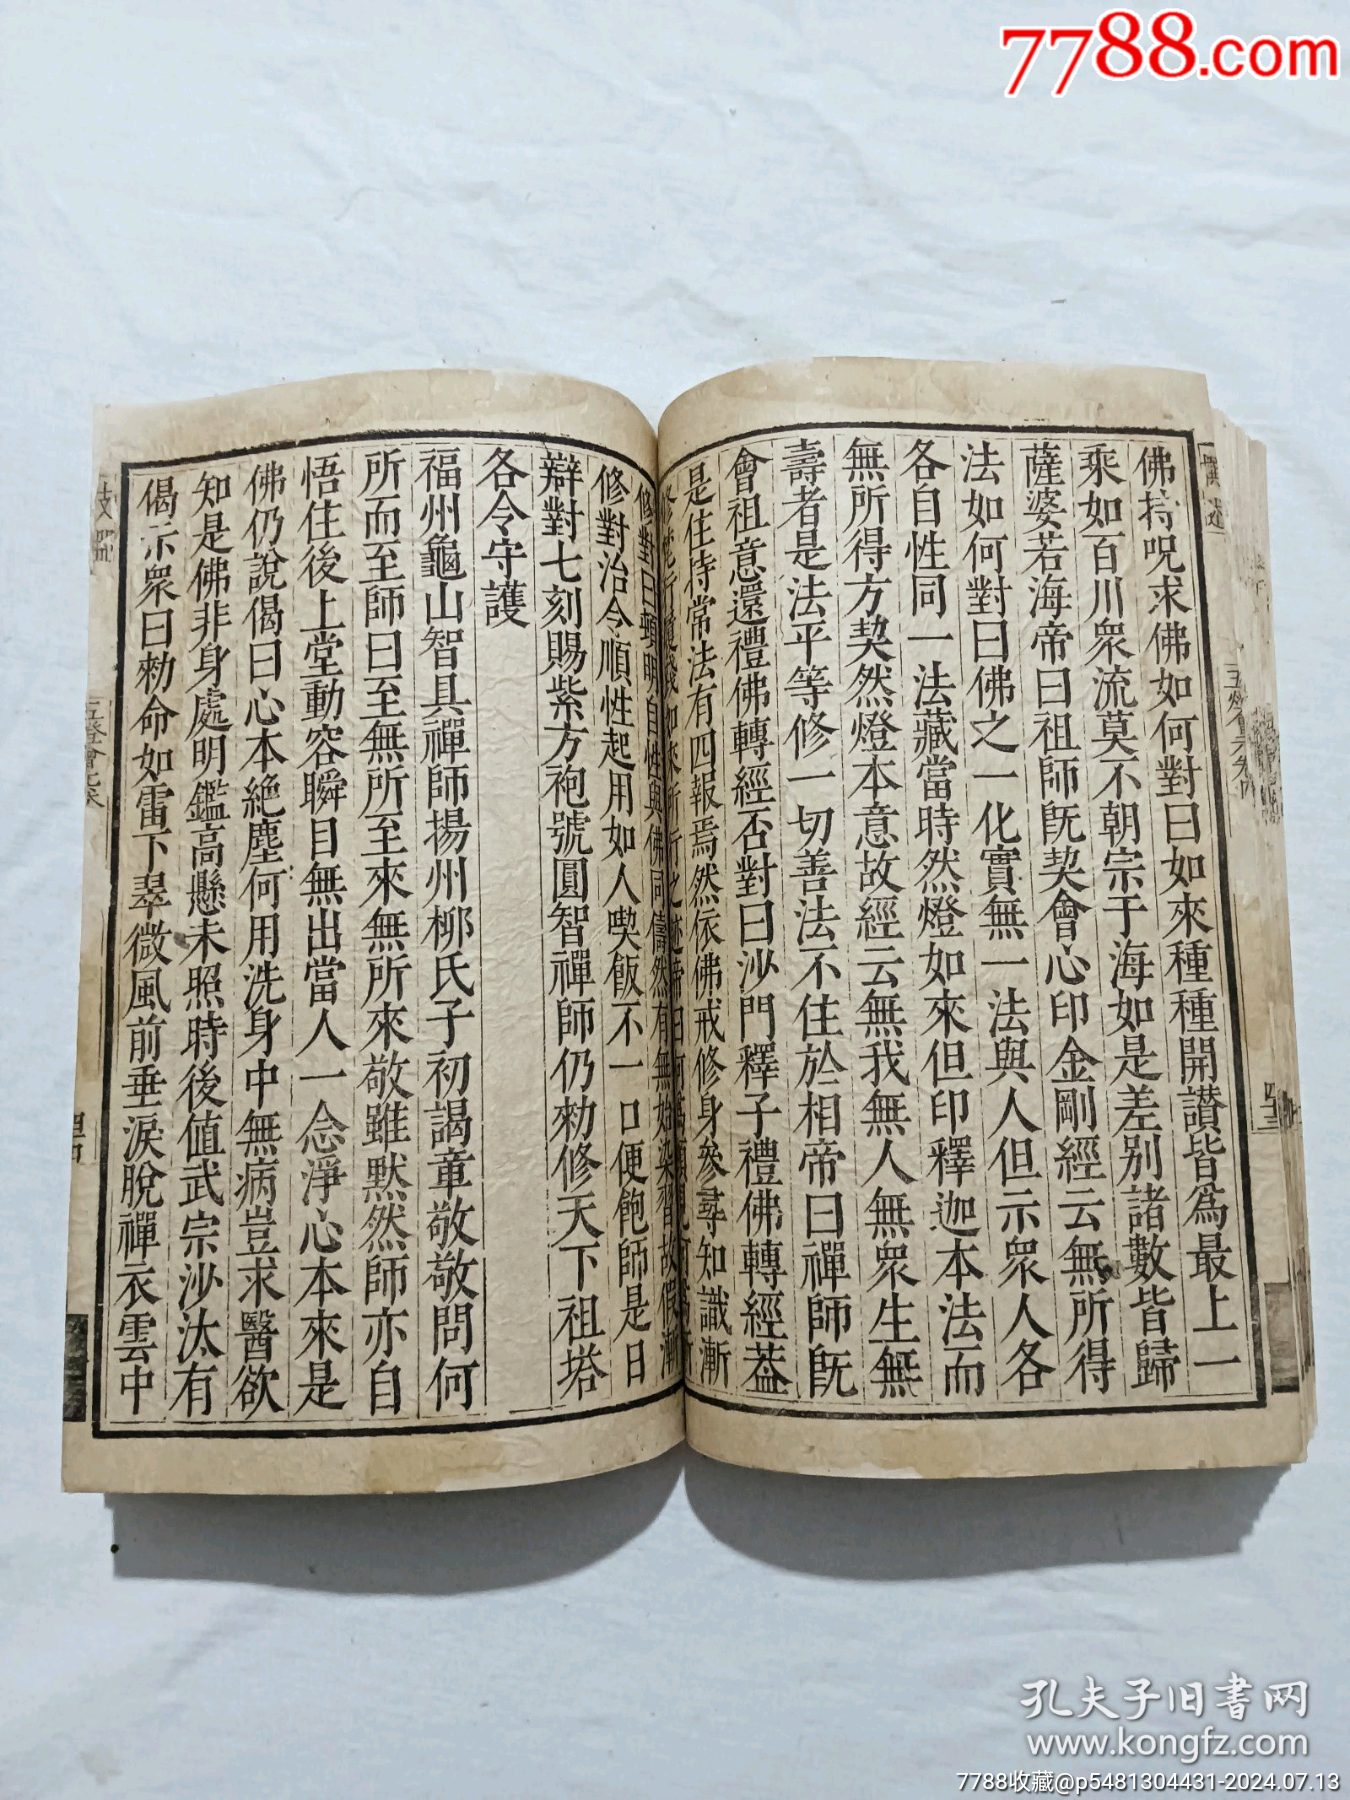 7788.com
佛持呪求佛如何對曰如來種種開讃皆爲最上一
乘如百川衆流莫不朝宗于海如是差别諸數皆歸
薩婆若海帝曰祖師旣契會心印金剛經云無所得
法如何對曰佛之一化實無一法與人但示衆人各
各自性同一法藏當時然燈如來但印釋迦本法而
無所得方契然燈本意故經云無我無人無衆生無
壽者是法平等修一切善法不住於相帝曰禪師旣
會祖意還禮佛轉經否對曰沙門釋子禮佛轉經葢
是住持常法有四報焉然依佛戒修身參尋知識漸
修對曰頓明自性與佛同儔然有無始染習故假漸
修對治令順性起用如人喫飯不一口便飽師是日
辯對七刻賜紫方袍號圓智禪師仍勑修天下祖塔
各令守護
福州龜山智具禪師揚州栁氏子初謁章敬敬問何
所而至師曰至無所至來無所來敬雖默然師亦自
悟住後上堂動容瞬目無出當人一念淨心本來是
佛仍說偈曰心本絶塵何用洗身中無病豈求醫欲
知是佛非身處明鑑高懸未照時後値武宗沙汰有
偈示衆曰勑命如雷下翠微風前垂淚脫禪衣雲中
孔夫子旧書网
www.kongfz.com
7788收藏@p5481304431-2024.07.13